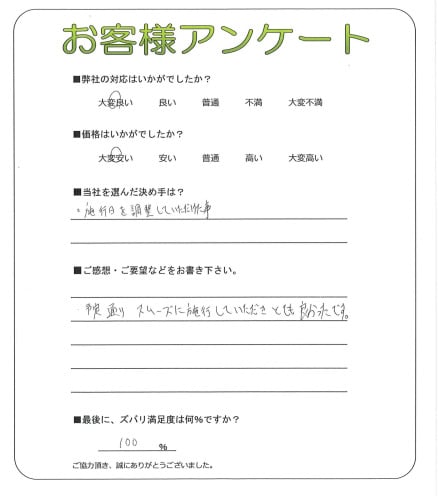 お客様アンケート
■弊社の対応はいかがでしたか？
大変良い 良い 普通 不満 大変不満
■価格はいかがでしたか？
大変安い 安い 普通 高い 大変高い
■当社を選んだ決め手は？
・施行日を調整していただけた事
■ご感想・ご要望などをお書き下さい。
予定通り スムーズに施行していただきとても良かったです。
■最後に、ズバリ満足度は何%ですか？
100 %
ご協力頂き、誠にありがとうございました。